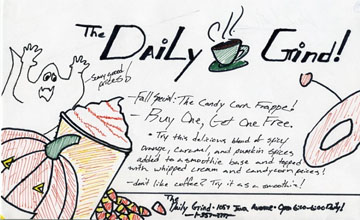 The Daily Grind!
Scary good prices!
- Fall Special: The Candy Corn Frappe!
- Buy One, Get One Free.
* Try this delicious blend of spicy
orange, caramel, and pumpkin spices
added to a smoothie base and topped
with whipped cream and candycorn pieces!
- don't like coffee? Try it as a smoothie!
The Daily Grind • 1057 Avenue • Open 6:00-6:00 Daily!